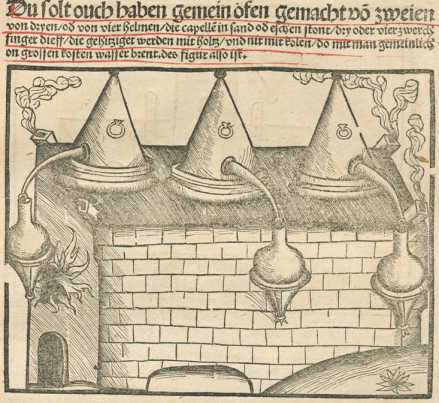 Du solt ouch haben gemein öfen gemacht vō zweien
von dryen/od von vier helmen/die capellē in sand od eschen stont/dry oder vier zwerch
finger dieff/die gehitziget werden mit holtz/vnd nit mit kolen/do mit man gemeinlich
on grossen kosten wasser brent.des figur also ist.